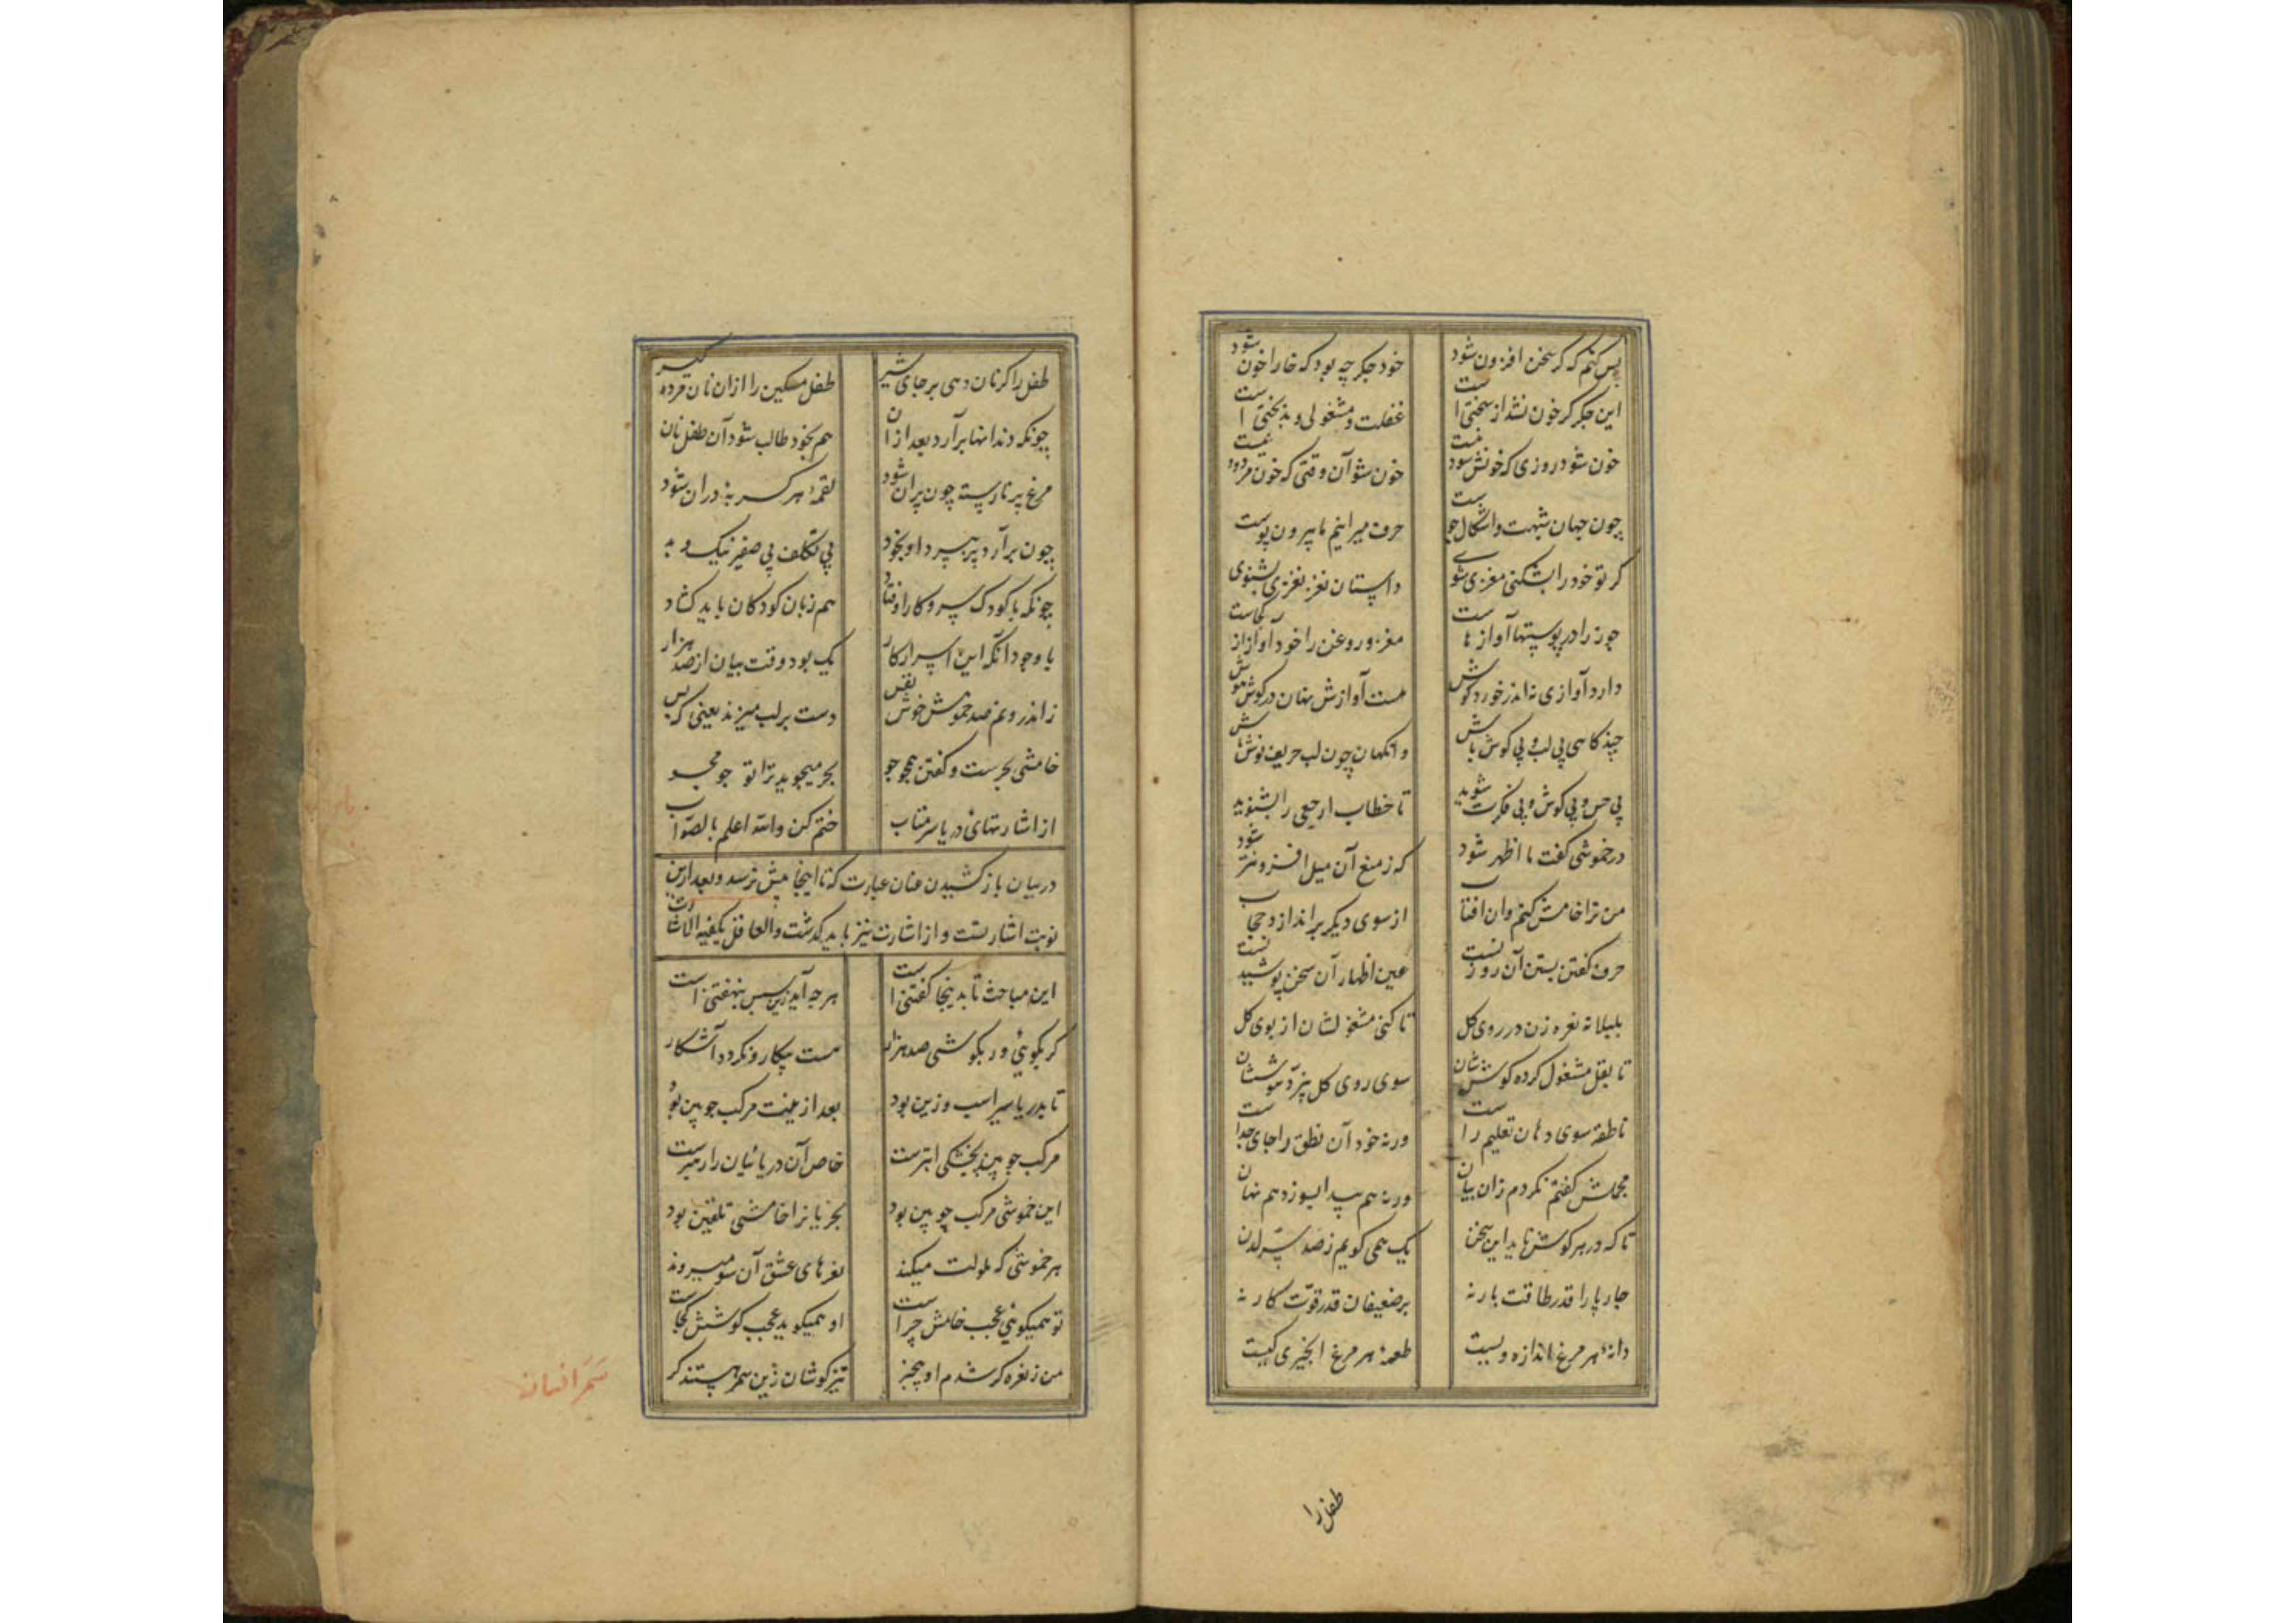 پس کنم که کر سخن افزون شود خود جکر چه بود که خارا خون شود
این جکر کر خون نشد از سختی است غفلت و مشغولی و بدبختی است
خون شود روزی که خونش سود نیست خون شو آن وقتی که خون مردود نیست
چون جهان شبهت و اشکال جوست حرف میرانیم ما بیرون پوست
کر تو خود را بشکنی مغزی شوی داستان نغز نغزی بشنوی
جوز را در پوستها آواز هاست مغز و روغن را خود آوازی کجاست
دارد آوازی نه اندر خورد کوش هست آوازش نهان در کوش نوش
چند کاهی بی لب و بی کوش باش وانکهان چون لب حریف نوش باش
بی حس و بی کوش و بی فکرت شوید تا خطاب ارجعی را بشنوید
در خموشی کفت ما اظهر شود که ز منع آن میل افزونتر شود
من ترا خامش کنم وان افتاب از سوی دیکر براندازد حجاب
حرف کفتن بستن آن روزنست عین اظهار آن سخن پوشیدنست
بلبلانه نعره زن در روی کل تا کنی مشغولشان از بوی کل
تا بقل مشغول کردد کوششان سوی روی کل نپرد هوششان
ناطقه سوی دهان تعلیم راست ورنه خود آن نطق را جای جداست
مجملش کفتم نکردم زان بیان ورنه هم سوزد هم نهان
تا که در هر کوش ناید این سخن یک همی کویم ز صد سر لدن
جار پا را قدر طاقت بار نه بر ضعیفان قدر قوت کار نه
دانهٔ هر مرغ اندازه ویست طعمهٔ هر مرغ انجیری کیست
طفل را
طفل را کر نان دهی بر جای شیر طفل مسکین را ازان نان مرده کیر
چونکه دندانها برآرد بعد ازان هم بخود طالب شود آن طفل نان
مرغ پر نارسته چون پران شود لقمهٔ هر کربه دران شود
چون برآرد پر بپرد او بخود بی تکلف بی صفیر نیک و بد
چونکه با کودک سر و کار اوفتاد هم زبان کودکان باید کشاد
با وجود آنکه این اسرار کار یک بود وقت بیان از صد هزار
ز اندرونم صد خموش خوش نفس دست بر لب میزند یعنی که بس
خامشی بحرست و کفتن همچو جو بحر میجوید ترا تو جو مجو
از اشارتهای دریا سر متاب ختم کن والله اعلم بالصواب
در بیان باز کشیدن عنان عبارت که تا اینجا بیش نرسد و بعد ازین
نوبت اشارتست و از اشارت نیز باید کذشت والعاقل یکفیه الاشارت
این مباحث تا بدینجا کفتنی است هر چه آید زین سپس بنهفتنی است
کر بکوئی ور بکوشی صد هزار هست بیکار و نکردد آشکار
تا بدریا سیر اسب و زین بود بعد ازینت مرکب چوبین بود
مرکب چوبین بخشکی ابترست خاص آن دریائیان را رهبرست
این خموشی مرکب چوبین بود بحریانرا خامشی تلقین بود
هر خموشی که ملولت میکند نعرهای عشق آن سو میزند
تو همیکوئی عجب خامش چراست او همیکوید عجب کوشش کجاست
من ز نعره کر شدم او بیخبر تیز کوشان زین سمر هستند کر
سَمَر افسانه